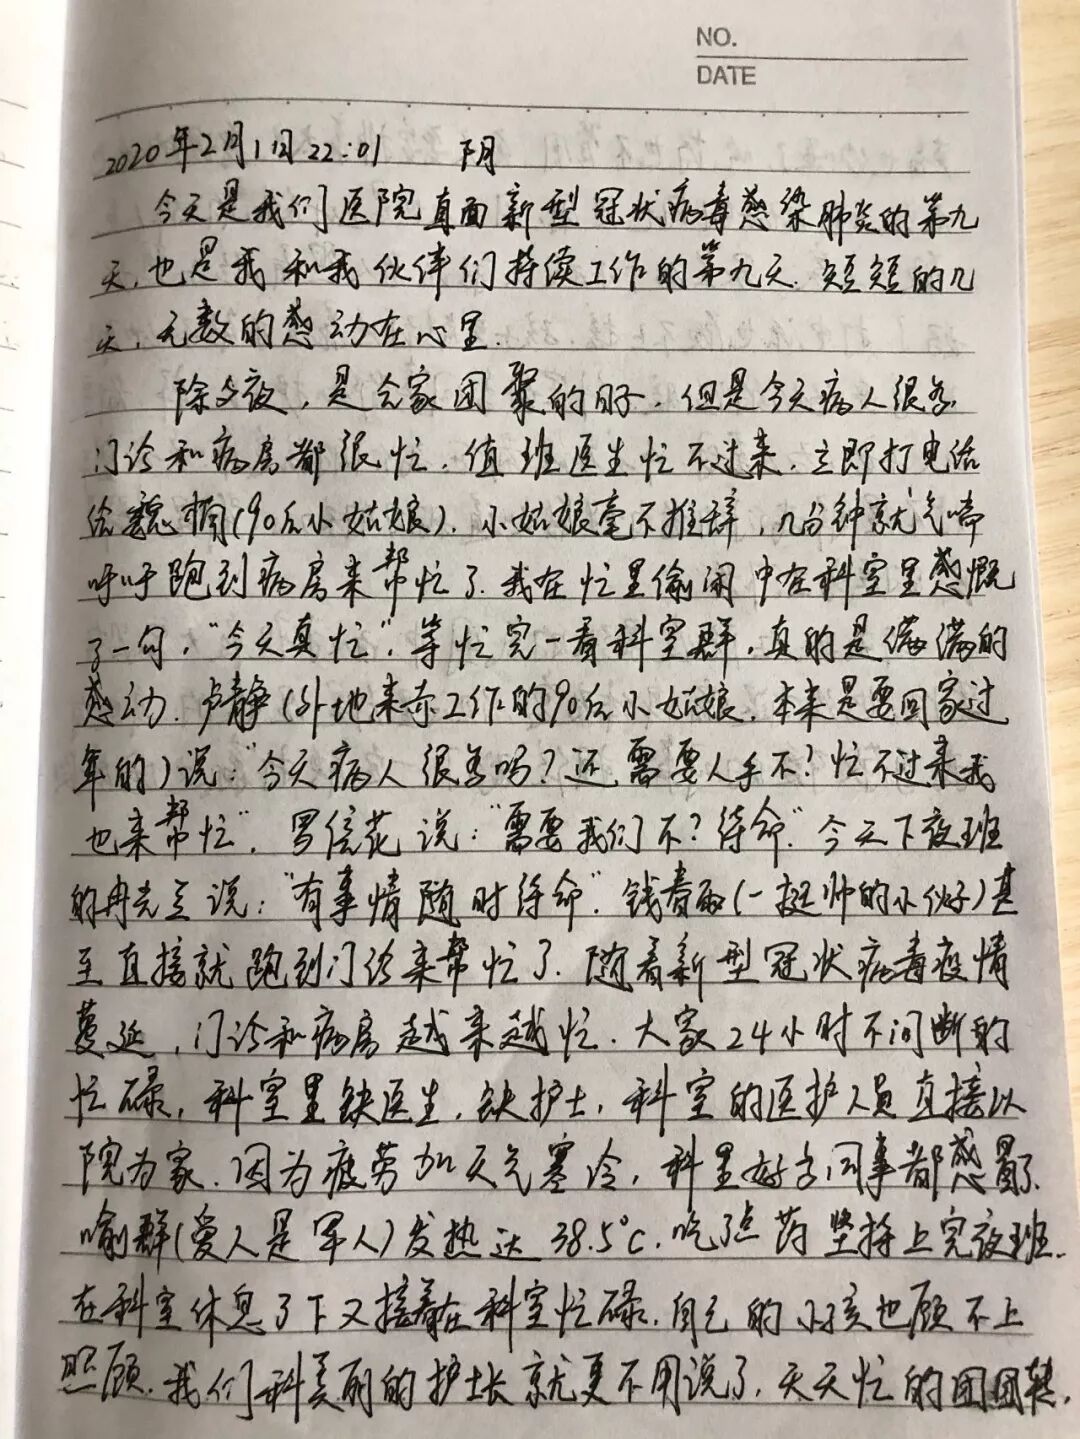 NO.
DATE
2020年2月1日22:01 阴
今天是我们医院直面新型冠状病毒感染肺炎的第九
天,也是我和我伙伴们持续工作的第九天.短短的几
天,无数的感动在心里.
除夕夜,是合家团聚的日子.但是今天病人很多
门诊和病房都很忙.值班医生忙不过来.立即打电话
给魏楠(90后小姑娘).小姑娘毫不推辞,几分钟就气喘
呼呼跑到病房来帮忙了.我在忙里偷闲中在科室里感慨
了一句,"今天真忙",等忙完一看科室群,真的是满满的
感动.卢静(外地来亦工作的90后小姑娘,本来是要回家过
年的)说:"今天病人很多吗?还需要人手不?忙不过来我
也来帮忙".罗信花说:"需要我们不?待命."今天下夜班
的冉先兰说:"有事情随时待命".钱春雨(一挺帅的小伙子)甚
至直接就跑到门诊来帮忙了.随着新型冠状病毒疫情
蔓延,门诊和病房越来越忙.大家24小时不间断的
忙碌,科室里缺医生,缺护士,科室的医护人员直接以
院为家.因为疲劳加天气寒冷,科里好多同事都感冒了.
喻群(爱人是军人)发热达38.5℃.吃了点药坚持上完夜班.
在科室休息了下又接着在科室忙碌.自己的小孩也顾不上
照顾.我们科美丽的护士长就更不用说了,天天忙的团团转,